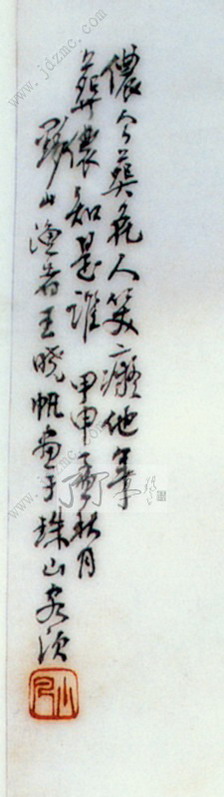 儂今葬花人笑癡他年
葬儂知是誰 甲申孟秋月
野山漁者王曉帆畫于珠山客次
小凡
www.jdzmc.com
www.jdzmc.com
www.jdzmc.com